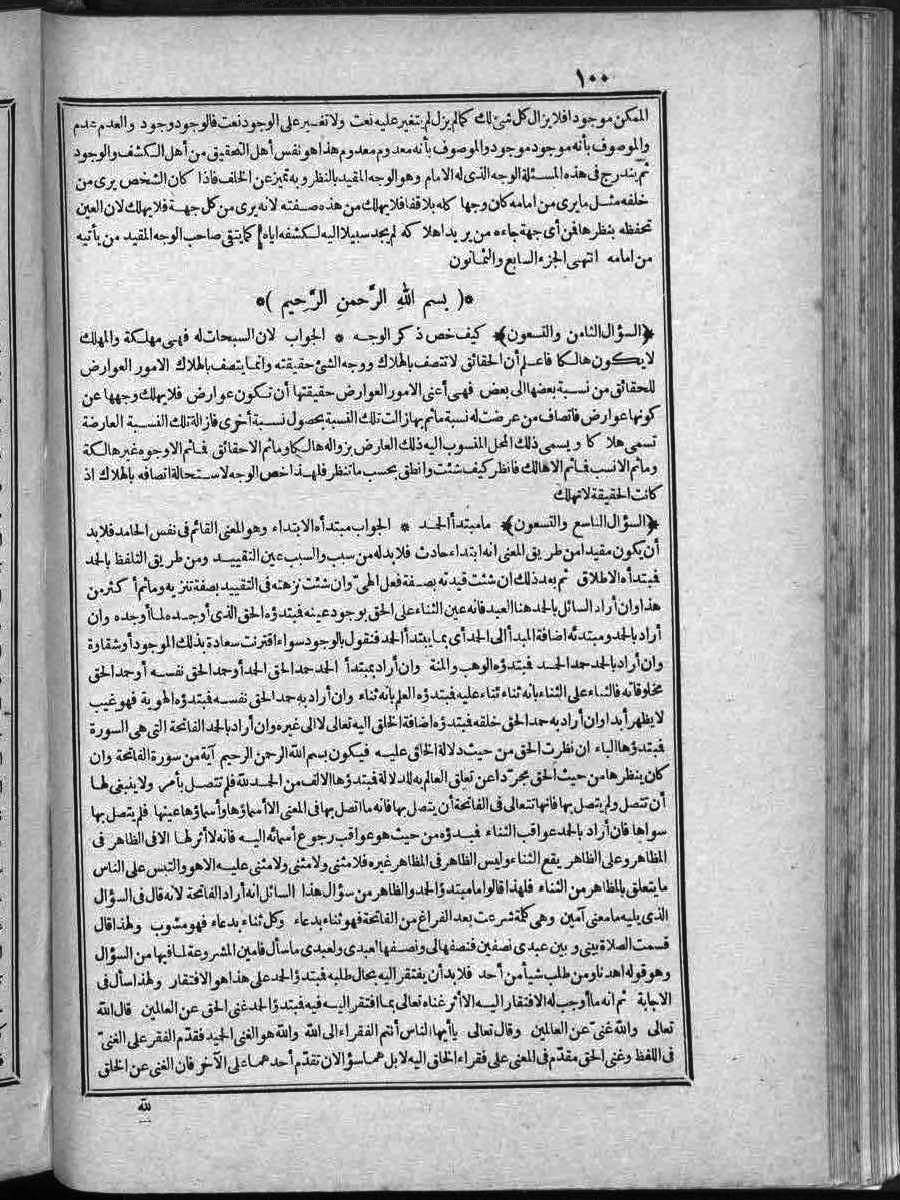 ١٠٠
الممكن موجودا فلا يزال كل شئ لك كما لم يزل لم يتغير عليه نعت ولا تغيير على الوجود نعت فالوجود وجود والعدم عدم
والموصوف بأنه موجود موجود والموصوف بأنه معدوم معدوم هذا هو نفس أهل التحقيق من أهل الكشف والوجود
ثم يندرج فى هذه المسئلة الوجه الذى له الامام وهو الوجه المقيد بالنظر وبه تميز عن الخلف فاذا كان الشخص يرى من
خلفه مثل ما يرى من امامه كان وجها كله بلا قفا فلا يهلك من هذه صفته لانه يرى من كل جهة فلا يهلك لان العين
تحفظه بنظرها فمن أى جهة جاءه من يريد اهلاكه لم يجد سبيلا اليه لكشفه اياه كما يتقى صاحب الوجه المقيد من يأتيه
من امامه انتهى الجزء السابع والثمانون
*( بسم الله الرَّحمنِ الرَّحِيمِ )*
﴿السؤال الثامن والتسعون﴾ كيف خص ذكر الوجه * الجواب لان السبحات له فهى مهلكة والمهلك
لا يكون هالكا فاعلم أن الحقائق لا تتصف بالهلاك ووجه الشئ حقيقته وانما يتصف بالهلاك الامور العوارض
للحقائق من نسبة بعضها الى بعض فهى أعنى الامور العوارض حقيقتها أن تكون عوارض فلا يهلك وجهها عن
كونها عوارض فاتصاف من عرضت له نسبة ما ثم بها زالت تلك النسبة بحصول نسبة أخرى فازالة تلك النسبة العارضة
تسمى هلاكا ويسمى ذلك المحل المنسوب اليه ذلك العارض بزواله هالكا وما ثم الا حقائق فما ثم الا وجوه غير هالكة
وما ثم الا نسب فما ثم الا هالك فانظر كيف شئت وانطق بحسب ما تنظر فلهذا خص الوجه لاستحالة اتصافه بالهلاك اذ
كانت الحقيقة لا تهلك
﴿السؤال التاسع والتسعون﴾ ما مبتدأ الحمد * الجواب مبتدأه الابتداء وهو المعنى القائم فى نفس الحامد فلا بد
أن يكون مقيدا من طريق المعنى انه ابتداء حادث فلا بد له من سبب والسبب عين التقييد ومن طريق التلفظ بالحمد
فمبتدأه الاطلاق ثم بعد ذلك ان شئت قيدته بصفة فعل الهىّ وان شئت نزهته فى التقييد بصفة تنزيه وما ثم أكثر من
هذا وان أراد السائل بالحمد هنا العبد فانه عين الثناء على الحق بوجود عينه فمبتدؤه الحق الذى أوجده لما أوجده وان
أراد بالحمد ومبتدئه اضافة المبدأ الى الحمد أى بما يبتدأ الحمد فنقول بالوجود سواء اقترنت سعادة بذلك الموجود أو شقاوة
وان أراد بالحمد حمد الحمد فمبتدؤه الوهب والمنة وان أراد بمبتدأ الحمد حمد الحق الحمد أو حمد الحق نفسه أو حمد الحق
مخلوقاته فالثناء على الثناء بانه ثناء ثناء عليه فمبتدؤه العلم بانه ثناء وان أراد به حمد الحق نفسه فمبتدؤه الهوية فهو غيب
لا يظهر أبدا وان أراد به حمد الحق خلقه فمبتدؤه اضافة الخلق اليه تعالى لا الى غيره وان أراد بالحمد الفاتحة التى هى السورة
فمبتدؤها الباء ان نظرت الحق من حيث دلالة الخلق عليه فيكون بسم الله الرحمن الرحيم آية من سورة الفاتحة وان
كان ينظرها من حيث الحق مجرّدا عن تعلق العالم به للدلالة فمبتدؤها الالف من الحمد لله فلم تتصل بأمر ولا ينبغى لها
أن تتصل ولم يتصل بها فانها تتعالى فى الفاتحة أن يتصل بها فانه ما اتصل بها فى المعنى الا أسماؤها وأسماؤها عينها فلم يتصل بها
سواها فان أراد بالحمد عواقب الثناء فبدؤه من حيث هو عواقب رجوع أسمائه اليه فانه لا أثر لها الا فى الظاهر فى
المظاهر وعلى الظاهر يقع الثناء وليس الظاهر فى المظاهر غيره فلا مثنى ولا مثنى ولا مثنى عليه الا هو والتبس على الناس
ما يتعلق بالمظاهر من الثناء فلهذا قالوا ما مبتدؤ الحمد والظاهر من سؤال هذا السائل انه أراد الفاتحة لانه قال فى السؤال
الذى يليه ما معنى آمين وهى كلمة شرعت بعد الفراغ من الفاتحة فهو ثناء بدعاء وكل ثناء بدعاء فهو مشوب ولهذا قال
قسمت الصلاة بينى وبين عبدى نصفين فنصفها لى ونصفها لعبدى ولعبدى ما سأل فآمين المشروعة لما فيها من السؤال
وهو قوله اهدنا ومن طلب شيأ من أحد فلا بد أن يفتقر اليه بحال طلبه فمبتدؤ الحمد على هذا هو الافتقار ولهذا سأل فى
الاجابة ثم انه ما أوجب له الافتقار اليه الا أثر غناه تعالى بما افتقر اليه فيه فمبتدؤ الحمد غنى الحق عن العالمين قال الله
تعالى والله غنىّ عن العالمين وقال تعالى يا أيها الناس أنتم الفقراء الى الله والله هو الغنى الحميد فقدّم الفقر على الغنىّ
فى اللفظ وغنى الحق مقدّم فى المعنى على فقراء الخلق اليه لا بل هما سؤالان تقدّم أحدهما على الآخر فان الغنى عن الخلق
لله